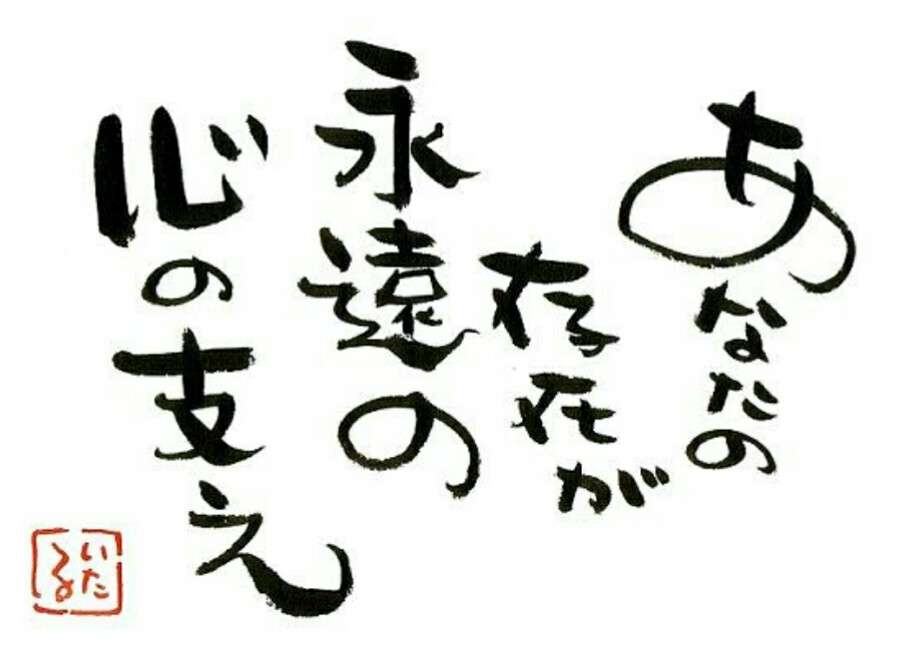 あなたの
存在が
永遠の
心の支え
いた